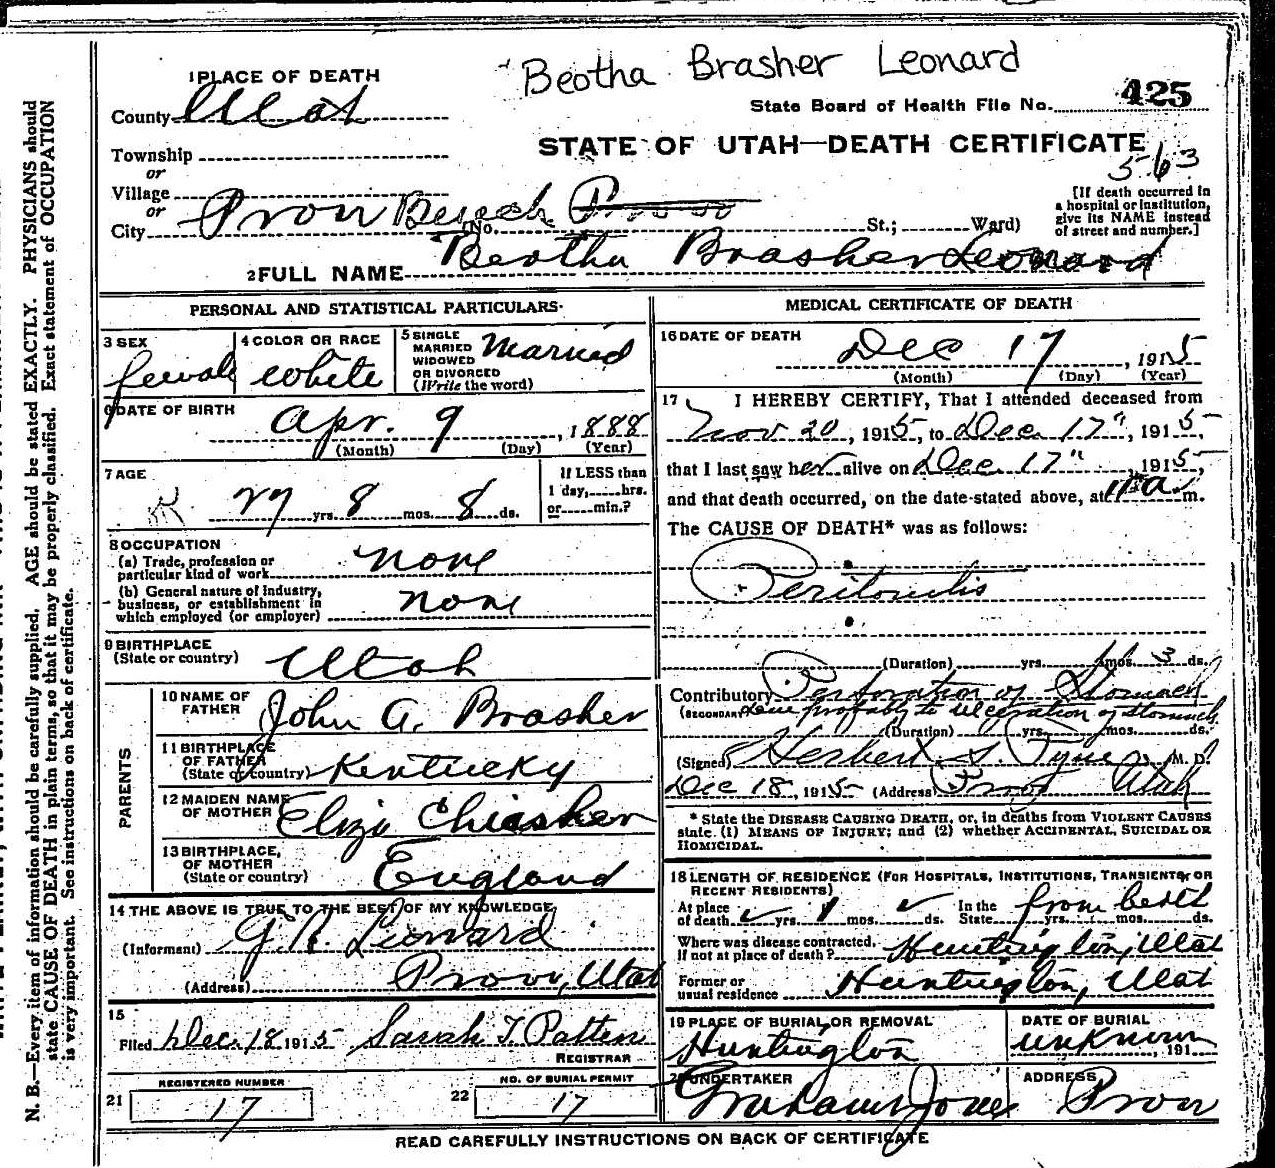 Beotha Brasher Leonard
1 PLACE OF DEATH
County Utah
State Board of Health File No. 425
Township
STATE OF UTAH—DEATH CERTIFICATE
563
or
Village
or
City Provo Bench Provo (No. St.; Ward)
[If death occurred in
a hospital or institution,
give its NAME instead
of street and number.]
2 FULL NAME Beotha Brasher Leonard
PERSONAL AND STATISTICAL PARTICULARS
3 SEX
female
4 COLOR OR RACE
White
5 SINGLE
MARRIED
WIDOWED
OR DIVORCED
(Write the word)
Married
6 DATE OF BIRTH
Apr. 9, 1888
(Month) (Day) (Year)
7 AGE
27 yrs. 8 mos. 8 ds.
If LESS than
1 day, hrs.
or min.?
8 OCCUPATION
(a) Trade, profession or
particular kind of work none
(b) General nature of industry,
business, or establishment in
which employed (or employer) none
9 BIRTHPLACE
(State or country) Utah
PARENTS
10 NAME OF
FATHER John A. Brasher
11 BIRTHPLACE
OF FATHER
(State or country) Kentucky
12 MAIDEN NAME
OF MOTHER Eliza
13 BIRTHPLACE,
OF MOTHER
(State or country) England
14 THE ABOVE IS TRUE TO THE BEST OF MY KNOWLEDGE
(Informant) Leonard
(Address) Provo, Utah
15
Filed Dec. 18 1915 Sarah T. Patten
REGISTRAR
REGISTERED NUMBER
21 17
NO. OF BURIAL PERMIT
22 17
MEDICAL CERTIFICATE OF DEATH
16 DATE OF DEATH
Dec 17, 1915
(Month) (Day) (Year)
17 I HEREBY CERTIFY, That I attended deceased from
Nov 20, 1915, to Dec. 17", 1915,
that I last saw her alive on Dec. 17", 1915,
and that death occurred, on the date stated above, at a m.
The CAUSE OF DEATH* was as follows:
Peritonitis
(Duration) yrs. mos. 3 ds.
Contributory Perforation of Stomach
(SECONDARY) due probably to ulceration of stomach
(Duration) yrs. mos. ds.
(Signed) Herbert S. Pyne M. D.
Dec 18, 1915 (Address) Provo Utah
* State the DISEASE CAUSING DEATH, or, in deaths from VIOLENT CAUSES
state (1) MEANS OF INJURY; and (2) whether ACCIDENTAL, SUICIDAL OR
HOMICIDAL.
18 LENGTH OF RESIDENCE (FOR HOSPITALS, INSTITUTIONS, TRANSIENTS, OR
RECENT RESIDENTS)
At place
of death yrs. 1 mos. ds. In the
State from birth yrs. mos. ds.
Where was disease contracted,
If not at place of death? Huntington, Utah
Former or
usual residence Huntington, Utah
19 PLACE OF BURIAL OR REMOVAL
Huntington
DATE OF BURIAL
unknown, 191
20 UNDERTAKER
Graham Jones
ADDRESS
Provo
READ CAREFULLY INSTRUCTIONS ON BACK OF CERTIFICATE
N. B.—Every item of information should be carefully supplied. AGE should be stated EXACTLY. PHYSICIANS should
state CAUSE OF DEATH in plain terms, so that it may be properly classified. Exact statement of OCCUPATION
is very important. See instructions on back of certificate.